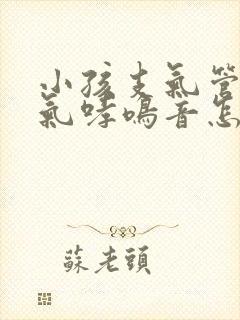 小孩支氣管
氣哮鳴音怎
蘇老頭